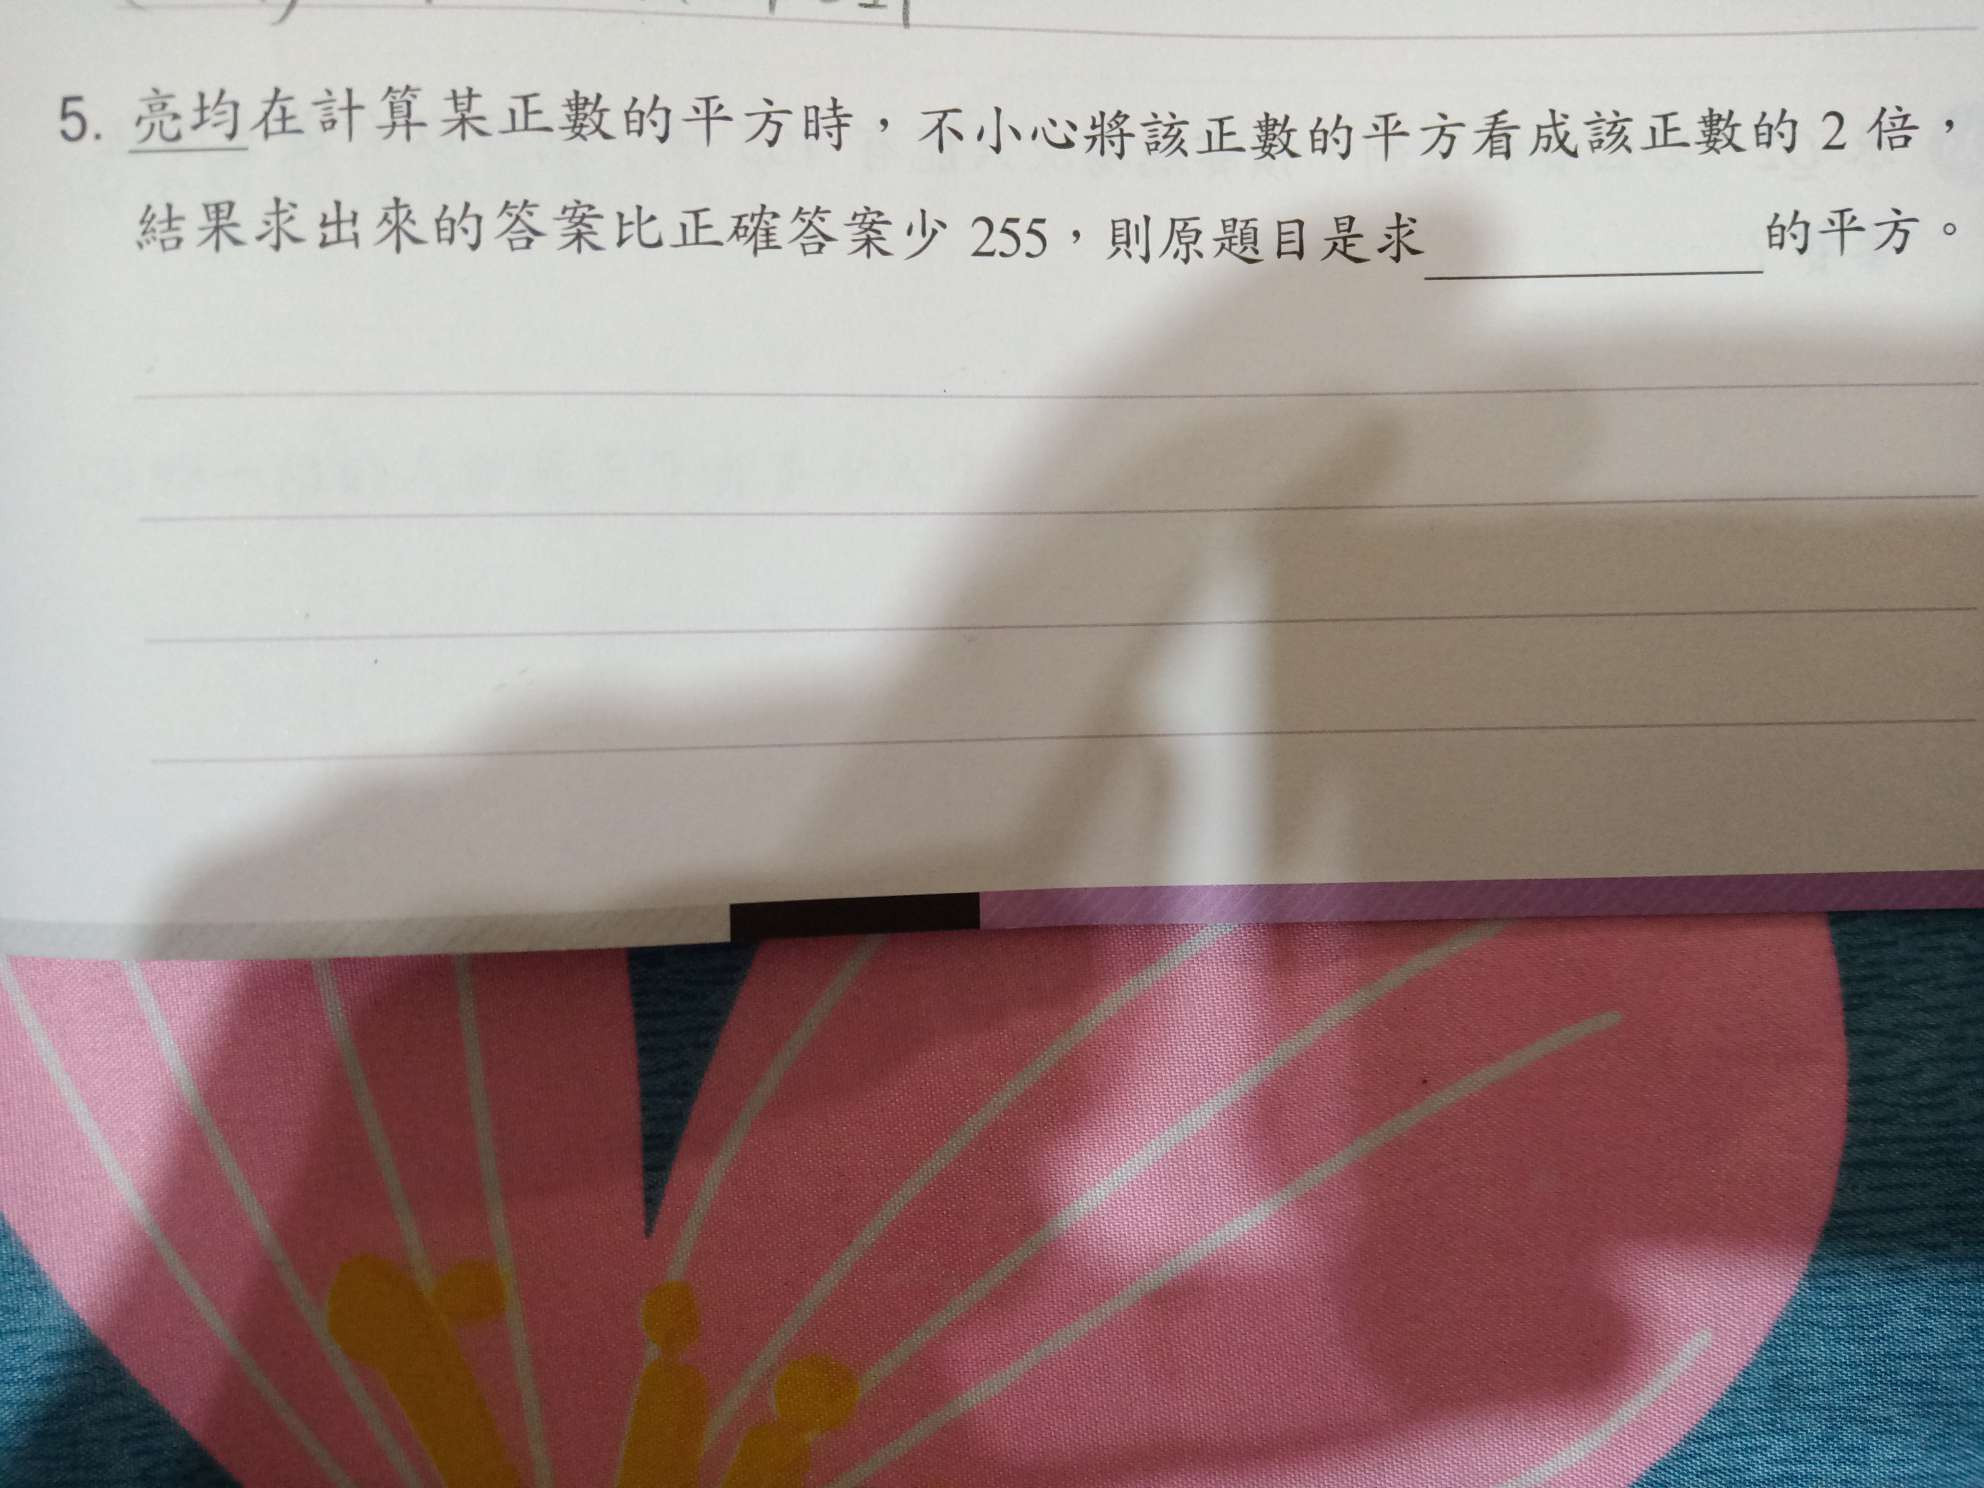 5. 亮均在計算某正數的平方時，不小心將該正數的平方看成該正數的 2 倍，
結果求出來的答案比正確答案少 255，則原題目是求＿＿＿＿＿的平方。